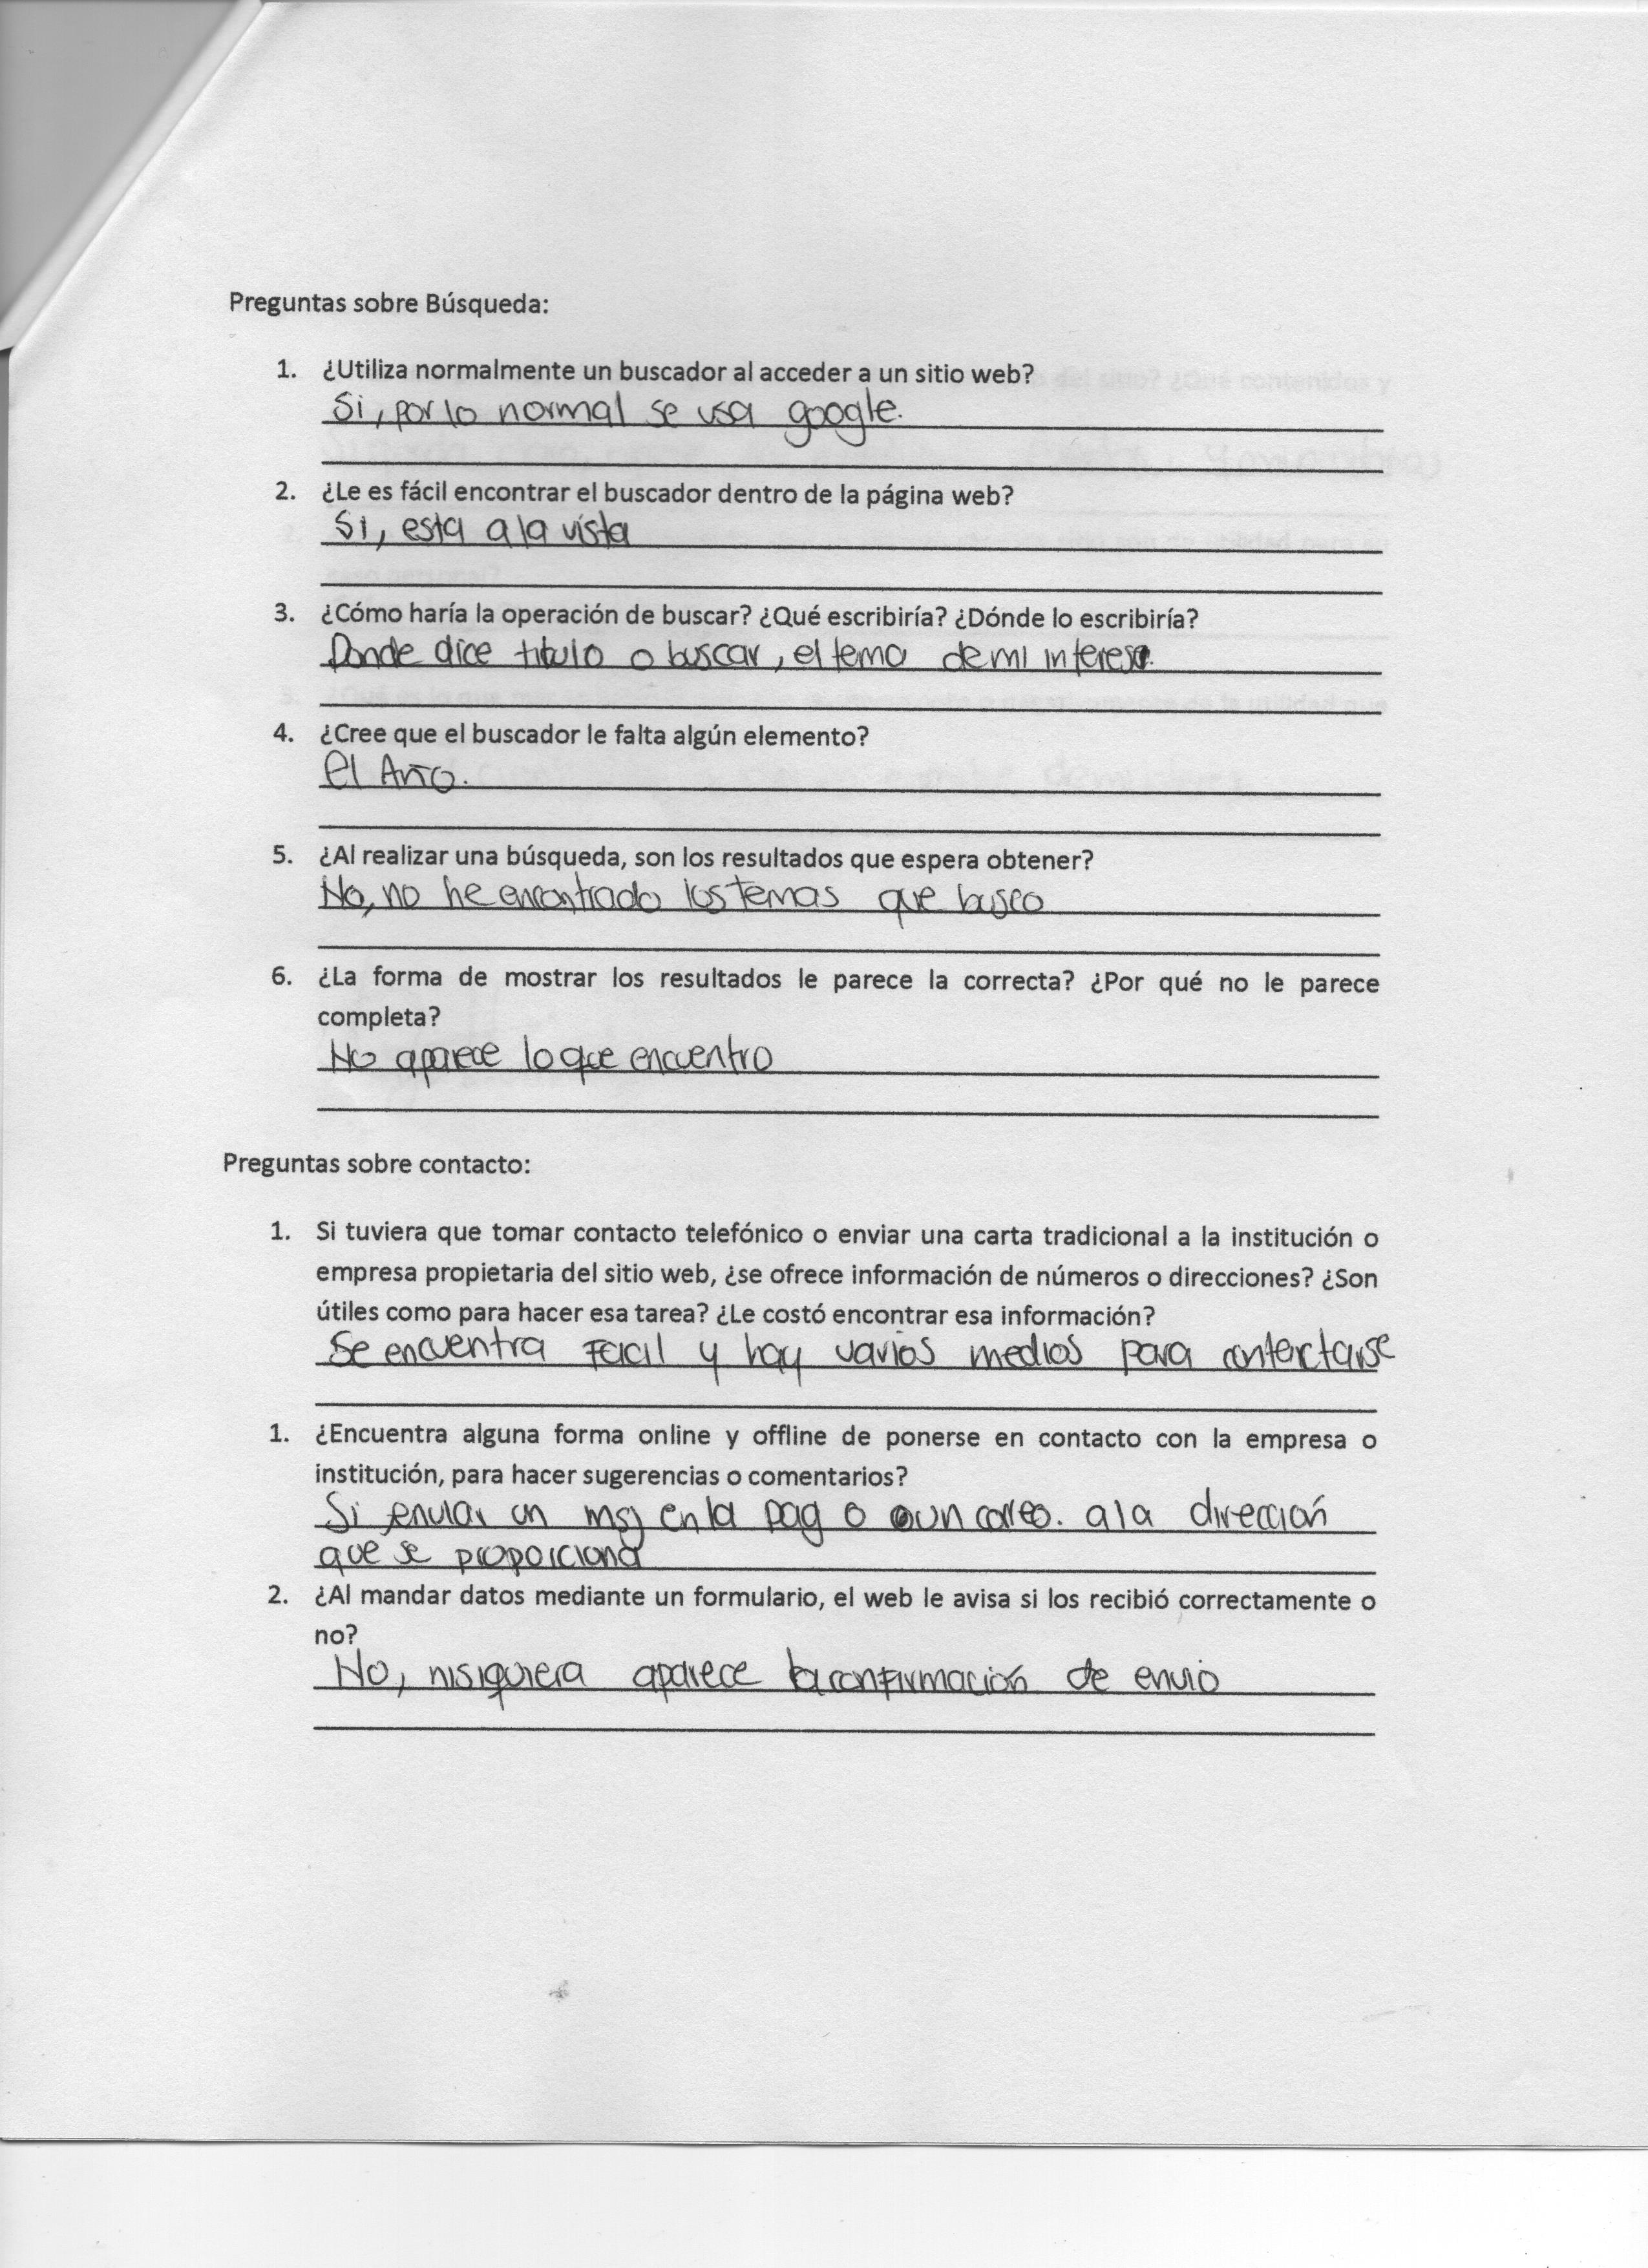 Preguntas sobre Búsqueda:
1. ¿Utiliza normalmente un buscador al acceder a un sitio web?
Si, por lo normal se usa google.
2. ¿Le es fácil encontrar el buscador dentro de la página web?
Si, esta a la vista
3. ¿Cómo haría la operación de buscar? ¿Qué escribiría? ¿Dónde lo escribiría?
Donde dice titulo o buscar, el tema de mi interes.
4. ¿Cree que el buscador le falta algún elemento?
El Año.
5. ¿Al realizar una búsqueda, son los resultados que espera obtener?
No, no he encontrado los temas que busco
6. ¿La forma de mostrar los resultados le parece la correcta? ¿Por qué no le parece
completa?
No aparece lo que encuentro
Preguntas sobre contacto:
1. Si tuviera que tomar contacto telefónico o enviar una carta tradicional a la institución o
empresa propietaria del sitio web, ¿se ofrece información de números o direcciones? ¿Son
útiles como para hacer esa tarea? ¿Le costó encontrar esa información?
Se encuentra Facil y hay varios medios para contactarse
1. ¿Encuentra alguna forma online y offline de ponerse en contacto con la empresa o
institución, para hacer sugerencias o comentarios?
Si enviar un msj en la pag o un correo. a la dirección
que se proporciona
2. ¿Al mandar datos mediante un formulario, el web le avisa si los recibió correctamente o
no?
No, nisiquiera aparece la confirmación de envio